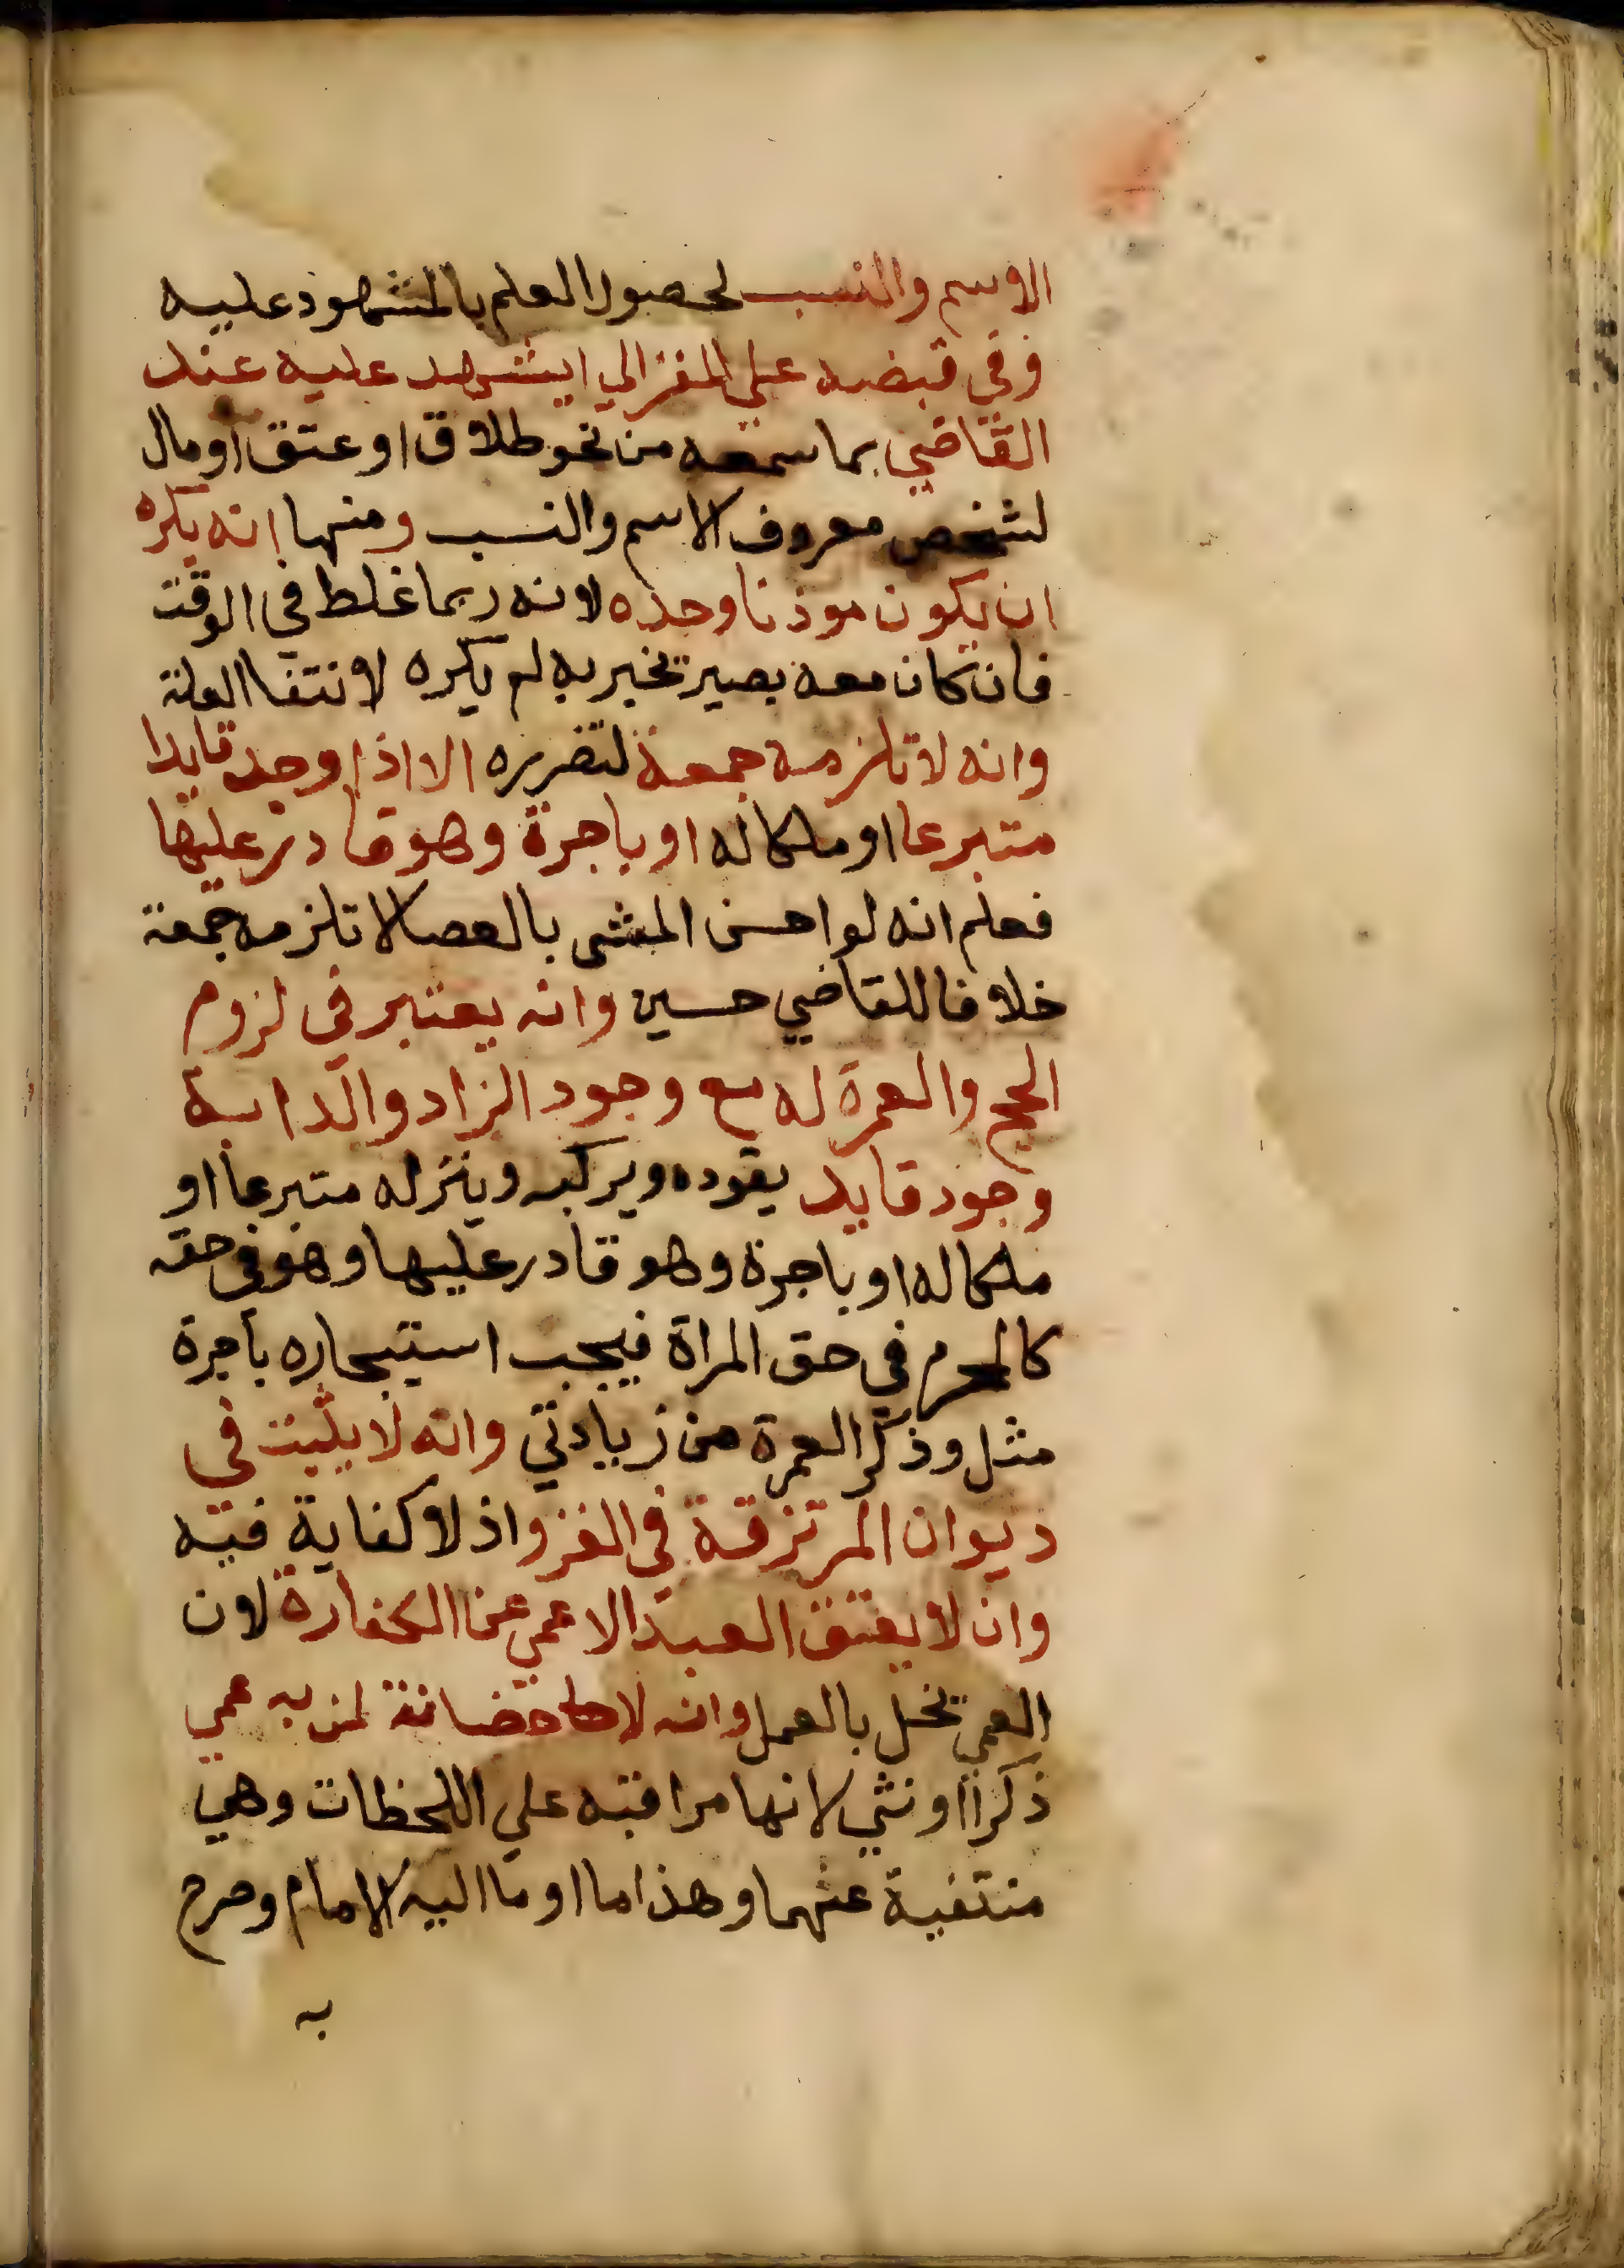 الاسم والنسب لحصول العلم بالمشهود عليه
وفي قبضه علي المغزالي ايشهد عليه عند
القاضي بما سمعه من نحو طلاق او عتق او مال
لشخص معروف الاسم والنسب ومنها انه يكره
ان يكون موذنا وحده لانه ربما غلط في الوقت
فان كان معه بصير يخبر به لم يكره لانتفا العلة
وانه لا تلزمه جمعة لتضرره الا اذا وجد قايدا
متبرعا او ملكا له او باجرة وهو قادر عليها
فعلم انه لو احسن المشي بالعصا لا تلزمه جمعة
خلافا للقاضي حسين وانه يعتبر في لزوم
الحج والعمرة له مع وجود الزاد والدابة
وجود قايد يقوده ويركبه وينزله متبرعا او
ملكا له او باجرة وهو قادر عليها وهو في حقه
كالمحرم في حق المراة فيجب استيجاره باجرة
مثل وذكر العمرة من زيادتي وانه لا يثبت في
ديوان المرتزقة في الغزو اذ لا كفاية فيه
وان لا يعتق العبد الاعمي عن الكفارة لان
العمي يخل بالعمل وانه لا حضانة لمن به عمي
ذكرا اونثي لانها مراقبته علي اللحظات وهي
منتفية عنهما وهذا ما اوما اليه الامام وصرح
به